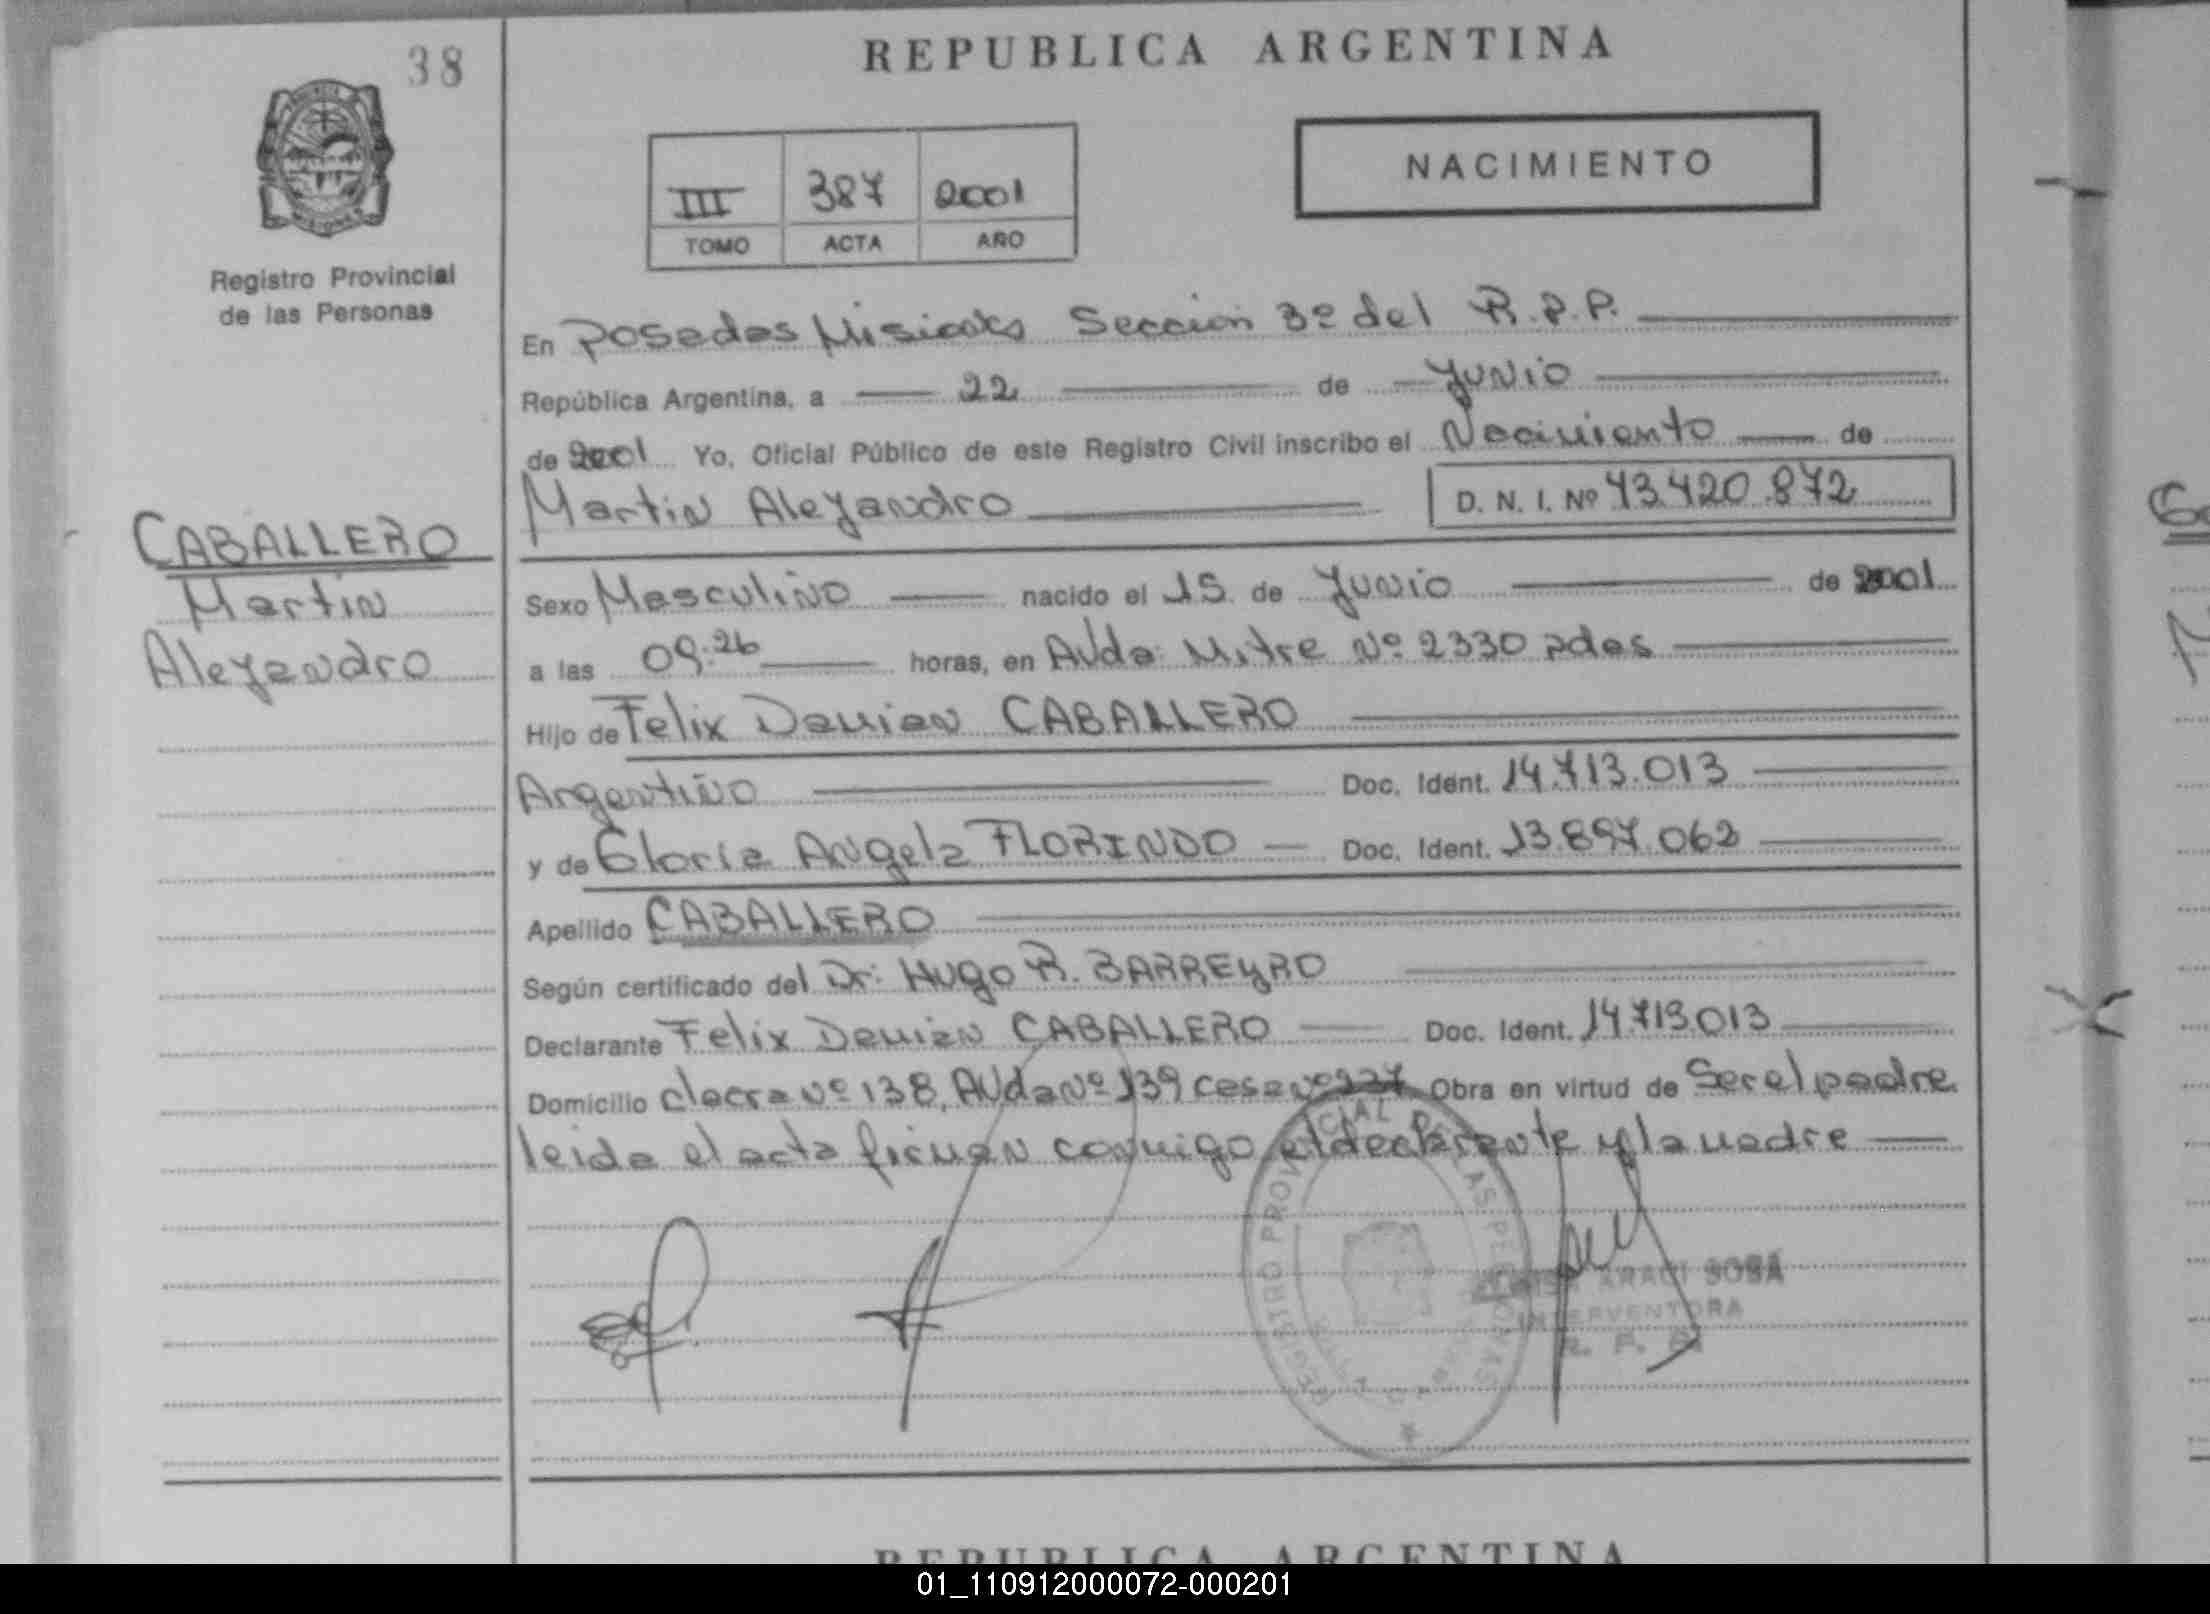 38
REPUBLICA ARGENTINA
NACIMIENTO
III 387 2001
TOMO ACTA AÑO
Registro Provincial
de las Personas
En Posadas Misiones Sección 3º del R.P.P.
República Argentina, a 22 de Junio
de 2001 Yo, Oficial Público de este Registro Civil inscribo el Nacimiento de
Martin Alejandro D. N. I. Nº 43.420.872
CABALLERO
Martin
Alejandro
Sexo Masculino nacido el 15 de Junio de 2001
a las 09:26 horas, en Avda: Mitre Nº 2330 pdas
Hijo de Felix Damian CABALLERO
Argentino Doc. Ident. 14.713.013
y de Gloria Angela FLORINDO Doc. Ident. 13.897.062
Apellido CABALLERO
Según certificado del Dr: Hugo R. BARREyRO
Declarante Felix Damian CABALLERO Doc. Ident. 14.713.013
Domicilio chacra nº 138, Avda Nº 139 casa nº 237 Obra en virtud de Ser el padre
leida el acta firman conmigo el declarante y la madre
REGISTRO PROVINCIAL DE LAS PERSONAS
ARACI SOSA
INTERVENTORA
REPUBLICA ARGENTINA
01_110912000072-000201